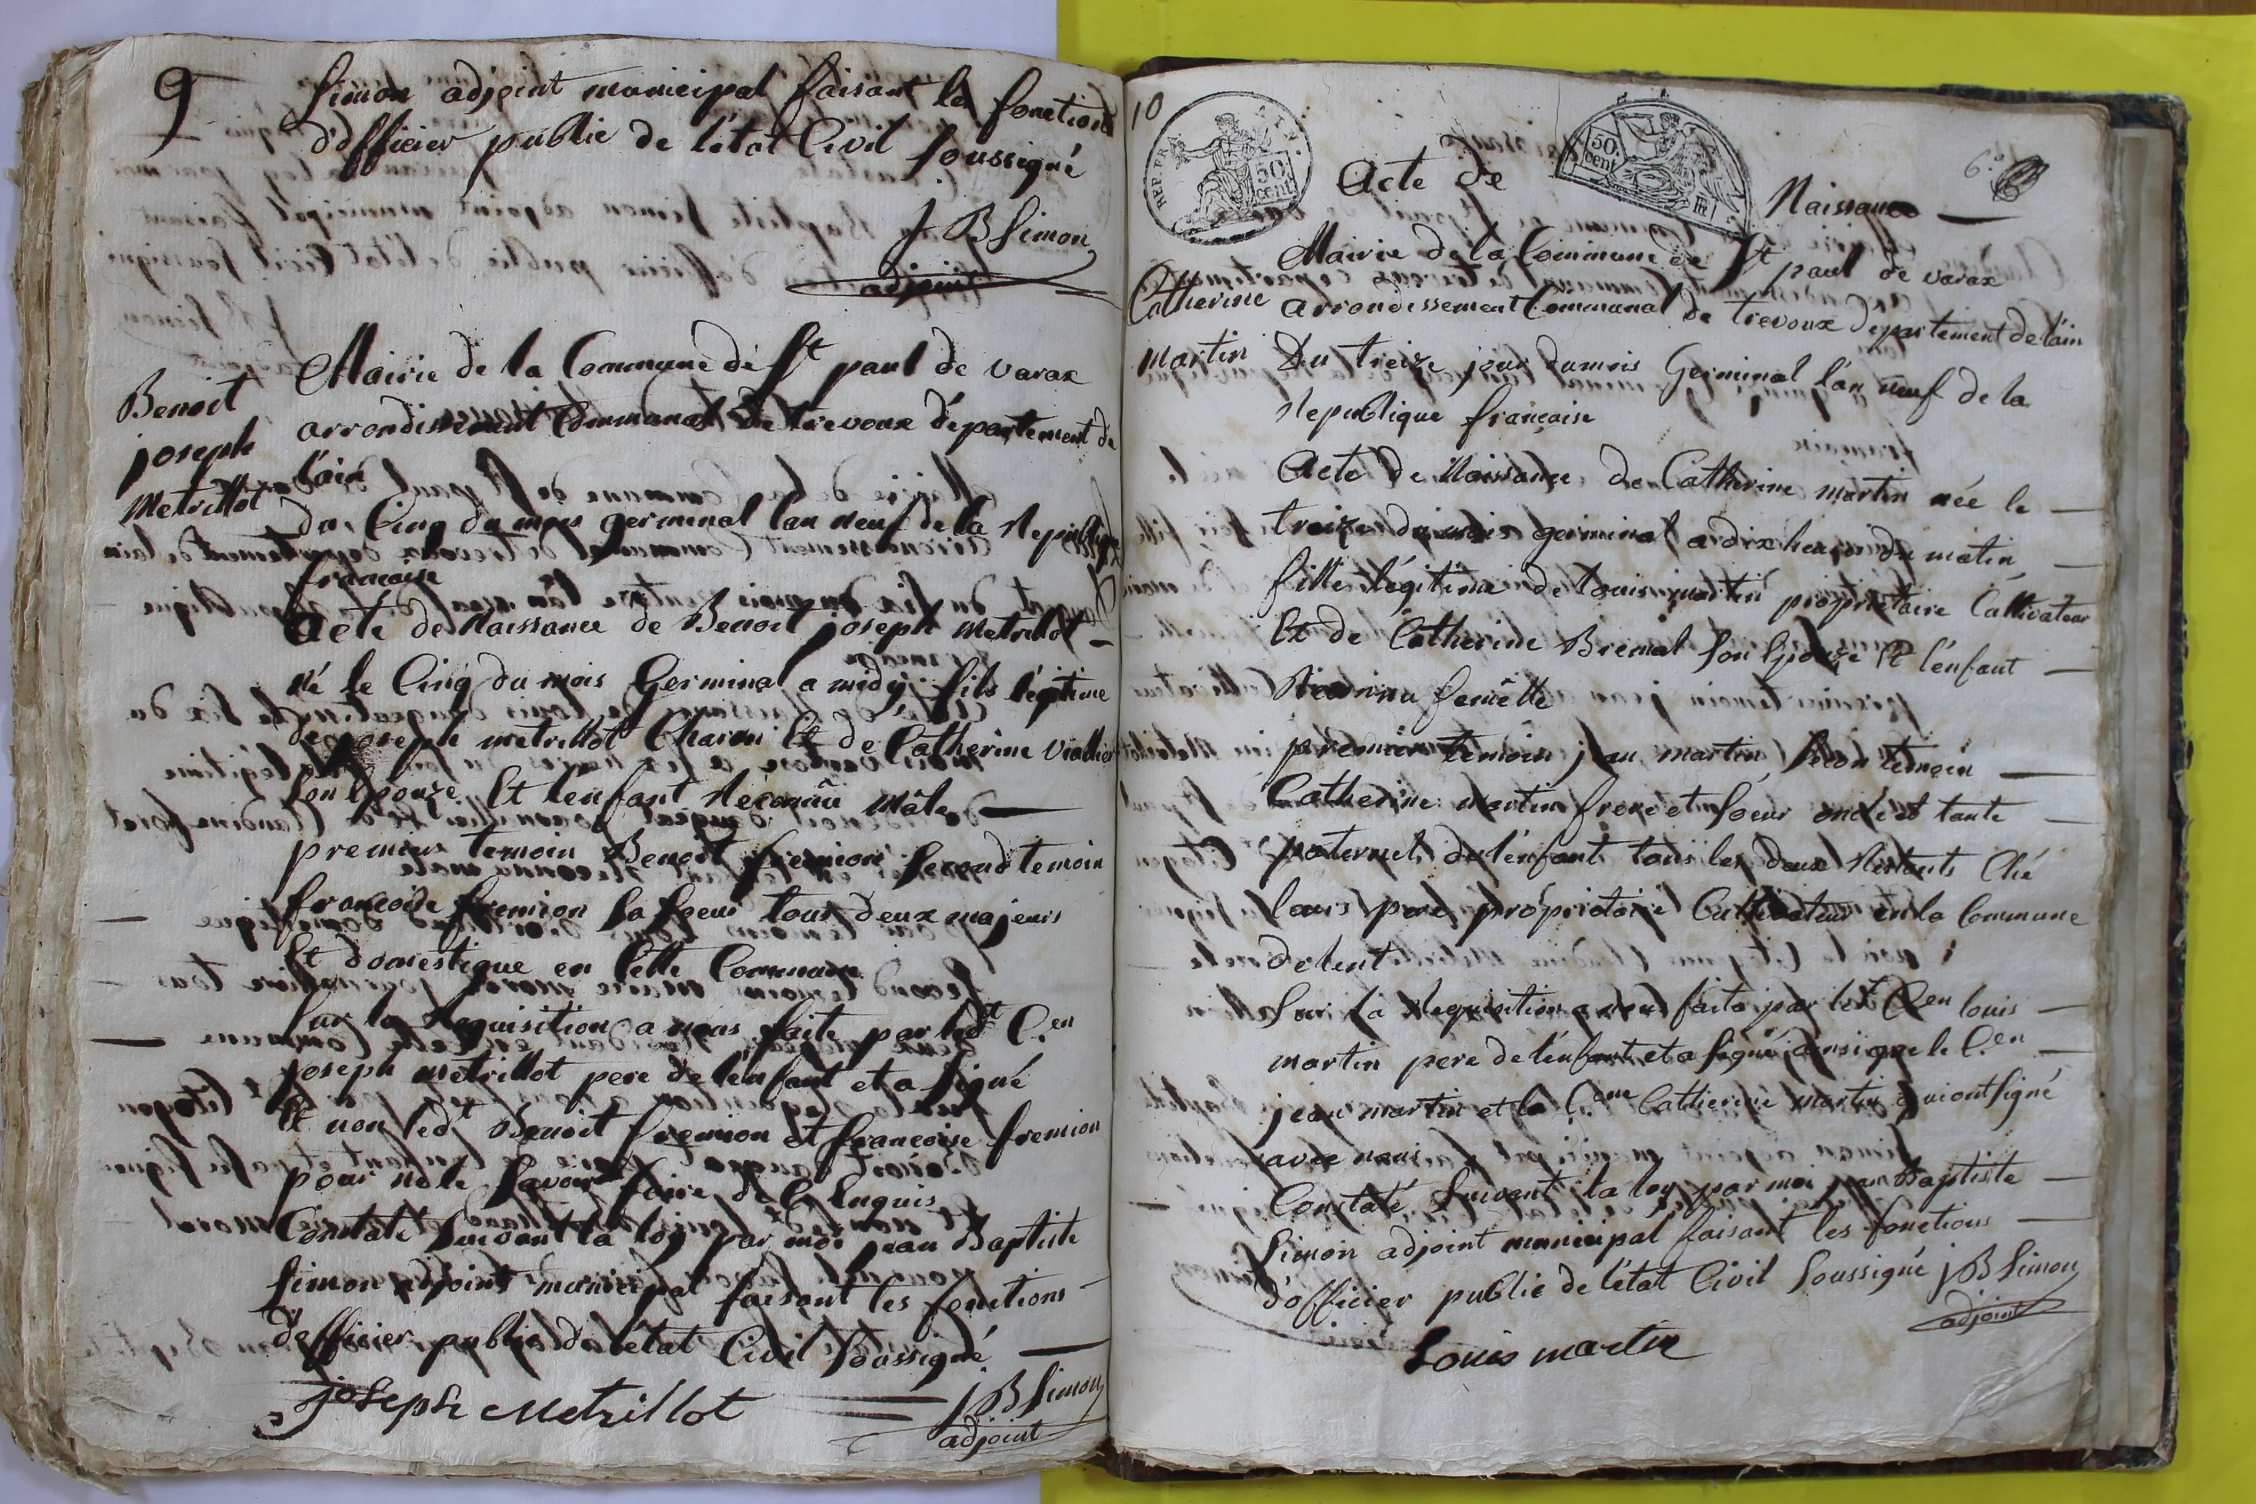 9
Simon adjoint municipal faisant les fonctions
d'officier public de l'état Civil Soussigné
J B Simon
adjoint
Benoit
joseph
Metrillot
Mairie de la Commune de St paul de varax
arrondissement Communal de trevoux département de
l'ain
du Cinq du mois germinal l'an neuf de la Republique
francaise
Acte de Naissance de Benoit joseph Metrillot
né le Cinq du mois Germinal a midy fils légitime
de joseph metrillot Charon Et de Catherine
Son Epouze Et l'enfant Reconnû mâle
premier temoin Benoit fremion Second temoin
francoise fremion Sa Soeur tous deux majeurs
Et domestique en Cette Commune
Sur la Requisition a nous faite par ledt C.en
joseph metrillot pere de l'enfant et a Signé
Et non ledt Benoit fremion et francoise fremion
pour ne le Savoir faire de Ce Enquis
Constaté Suivant la loy par moi jean Baptiste
Simon adjoint municipal faisant les fonctions
d'officier public de l'état Civil Soussigné
joseph Metrillot
J B Simon
adjoint
10
REP. FR.
50 cent
50 cent
6.e
Acte de Naissance
Catherine
martin
Mairie de la Commune de St paul de varax
arrondissement Communal de trevoux département de l'ain
Du treize jour du mois Germinal l'an neuf de la
Republique française
Acte de Naissance de Catherine martin née le
treize du mois germinal a dix heures du matin
fille légitime de Louis martin propriétaire Cultivateur
Et de Catherine Bremal Son Epouze Et l'enfant
Reconnu femelle
premier temoin jean martin Second temoin
Catherine martin frere et Soeur oncle et tante
paternel de l'enfant tous les deux Restants Ché
louis pere propriétaire Cultivateur en la Commune
de lent
Sur la Requisition a nous faite par ledt C.en louis
martin pere de l'enfant et a Signé ainsi que le C.en
jean martin et la C.enne Catherine martin qui ont Signé
avec nous
Constaté Suivant la loy par moi jean Baptiste
Simon adjoint municipal faisant les fonctions
d'officier public de l'état Civil Soussigné J B Simon
adjoint
Louis martin